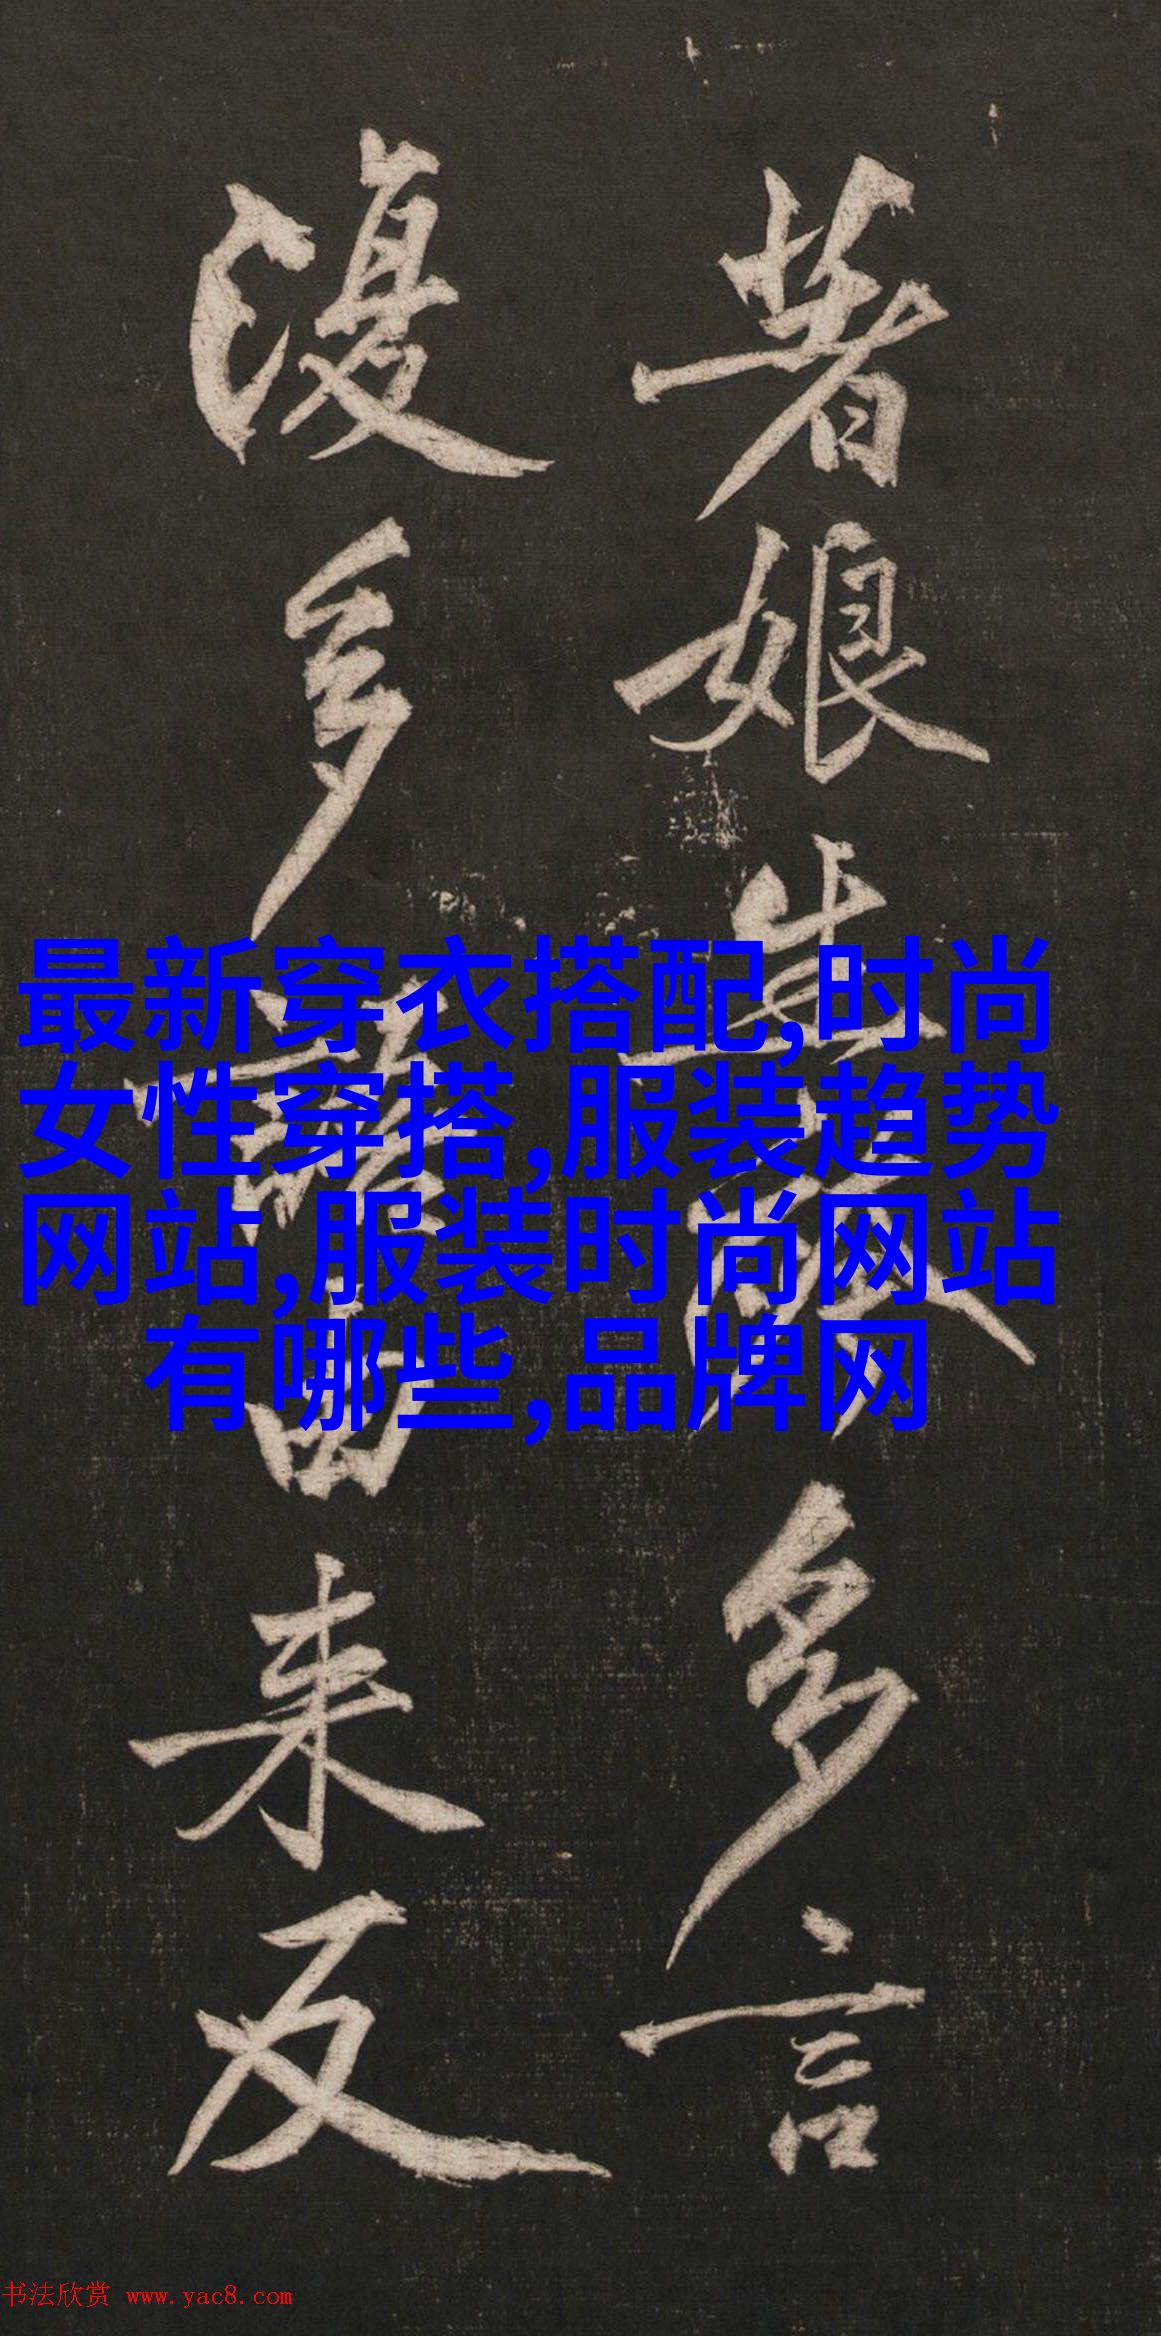 著娘生多言
復多語由来反
最新穿衣搭配,时尚
女性穿搭,服装趋势
网站,服装时尚网站
有哪些,品牌网
书法欣赏 www.yac8.com